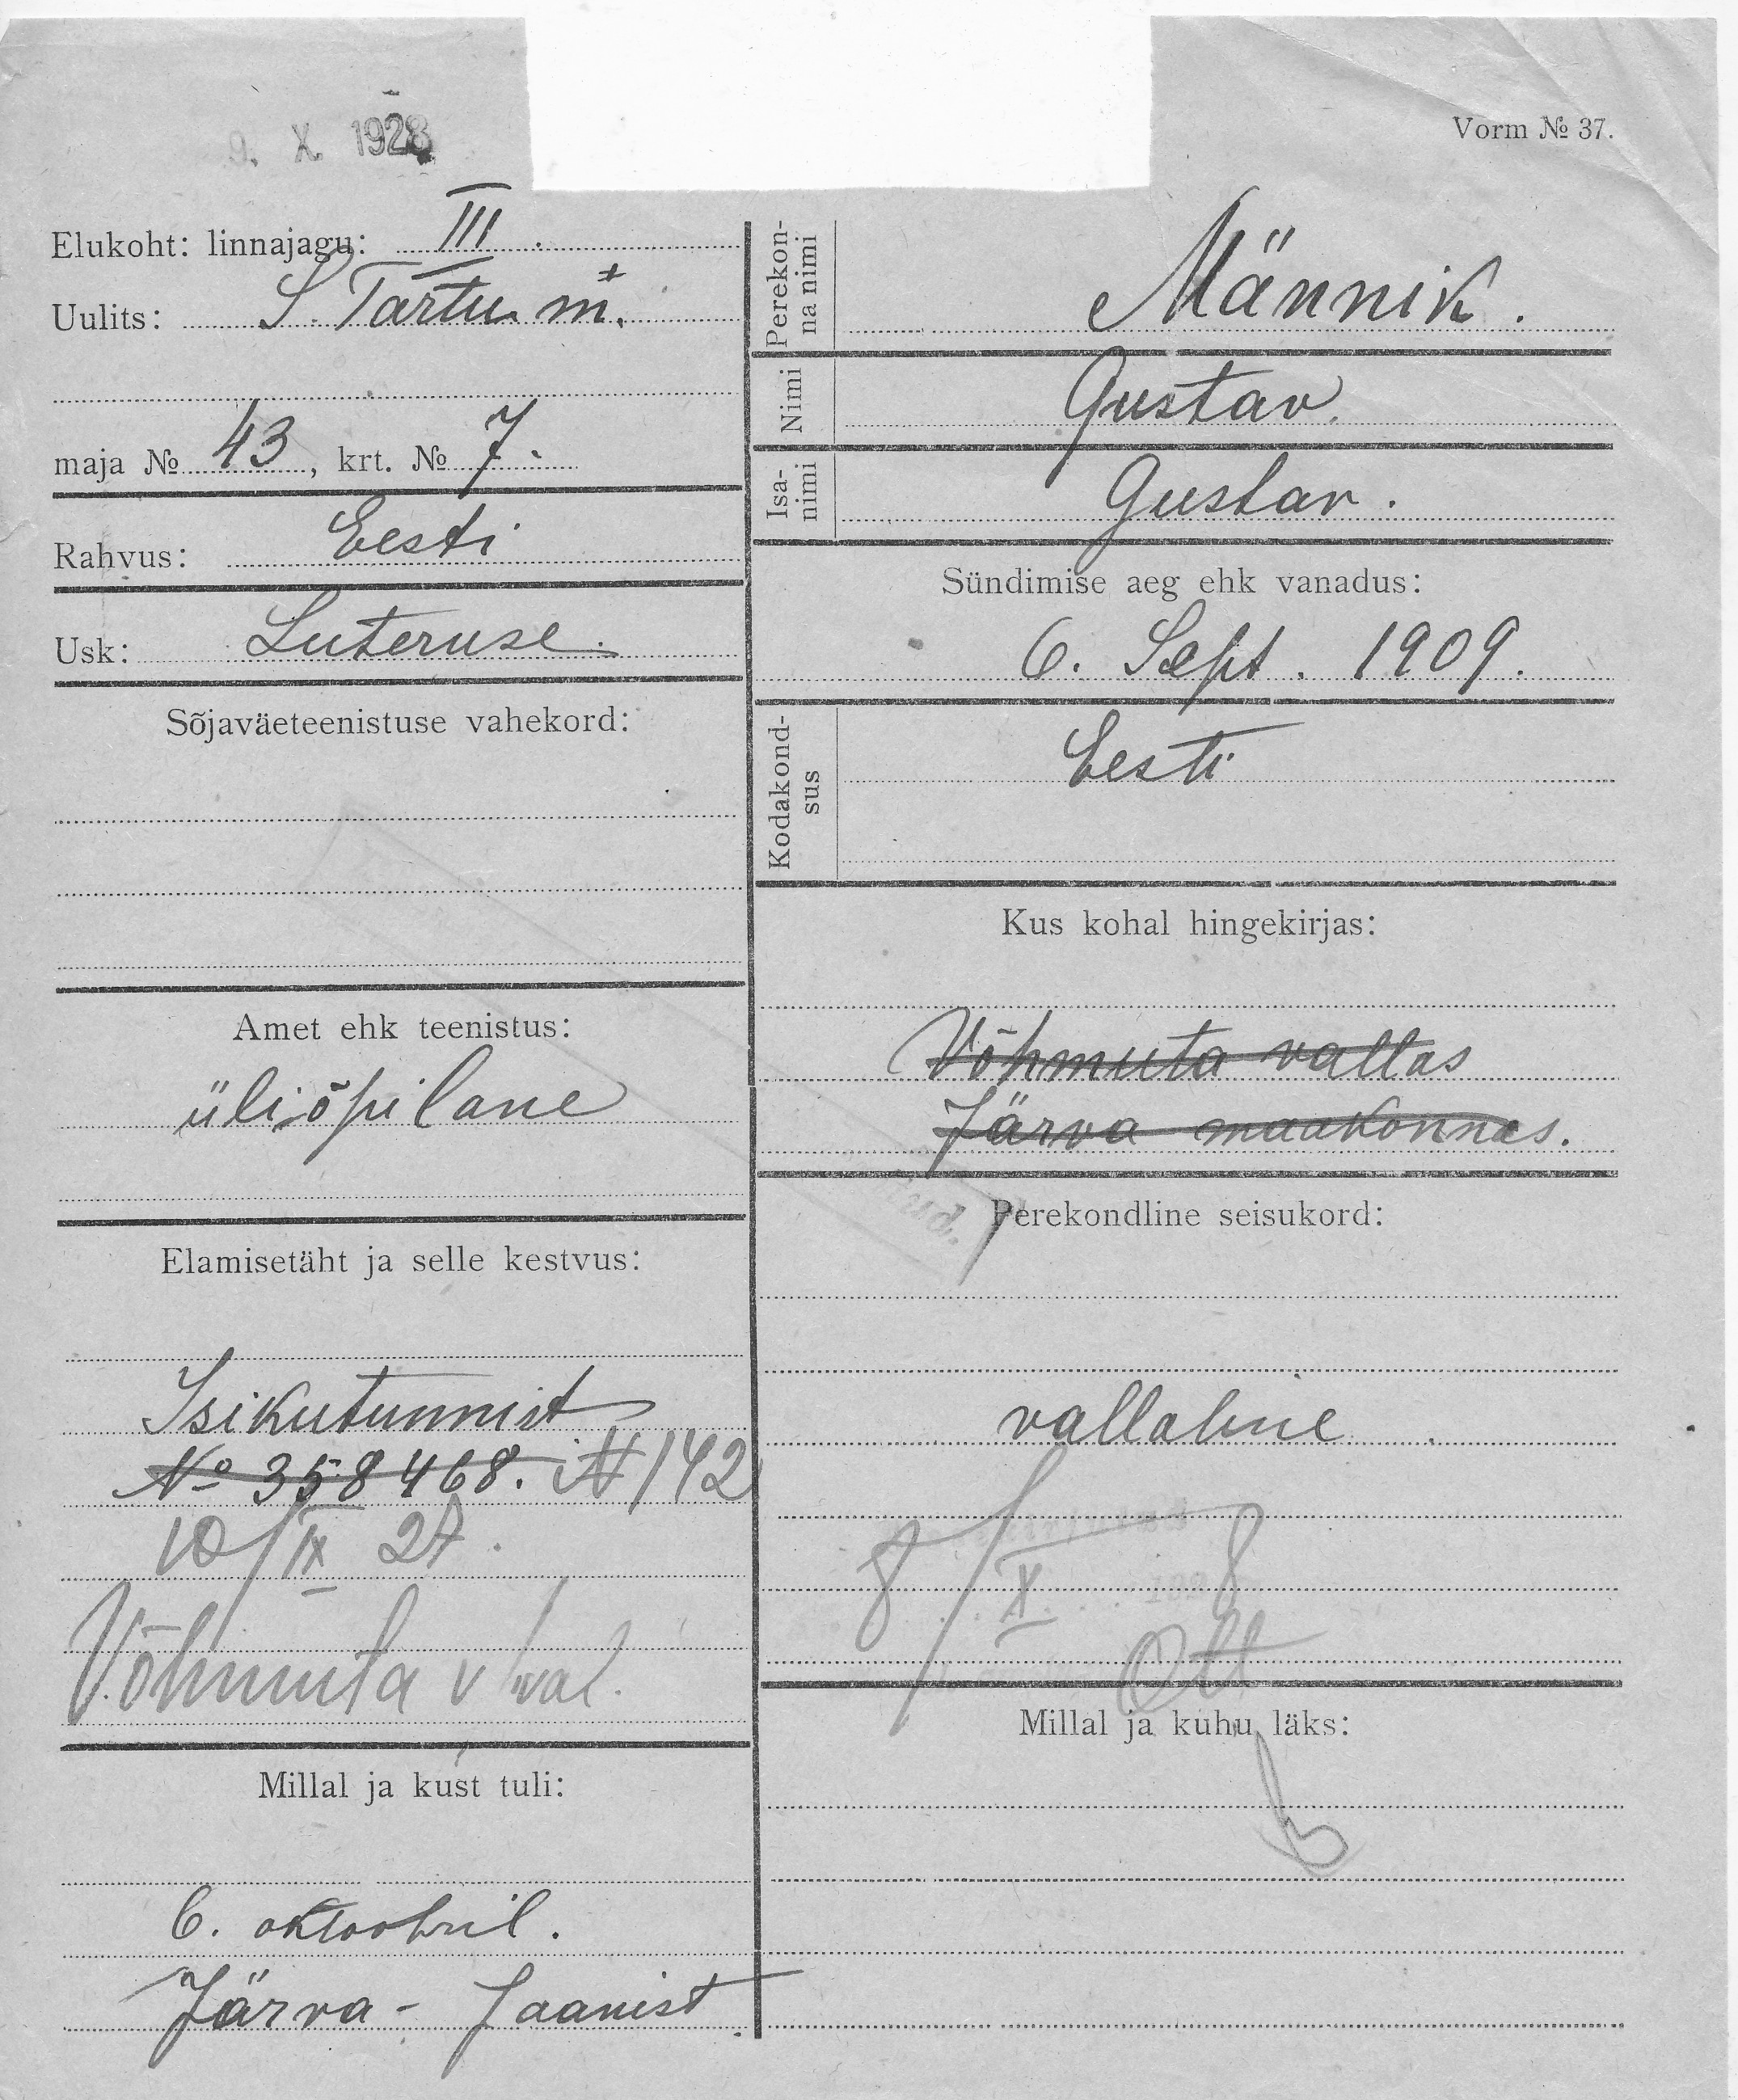 9. X. 1928
Vorm № 37.
Elukoht: linnajagu: III.
Uulits: S. Tartu m.
maja № 43, krt. № 7.
Rahvus: Eesti
Usk: Luteruse.
Sõjaväeteenistuse vahekord:
Amet ehk teenistus:
üliõpilane
Elamisetäht ja selle kestvus:
Isikutunnist
№ 358468. № 142
10/IX 27.
Võhmuta v/val.
Millal ja kust tuli:
6. oktoobril.
Järva-Jaanist
Perekonna nimi
Männik.
Nimi
Gustav.
Isanimi
Gustav.
Sündimise aeg ehk vanadus:
6. Sept. 1909.
Kodakondsus
Eesti
Kus kohal hingekirjas:
Võhmuta vallas
Järva maakonnas.
Perekondline seisukord:
vallaline
8/X 1928
Ott
Millal ja kuhu läks: